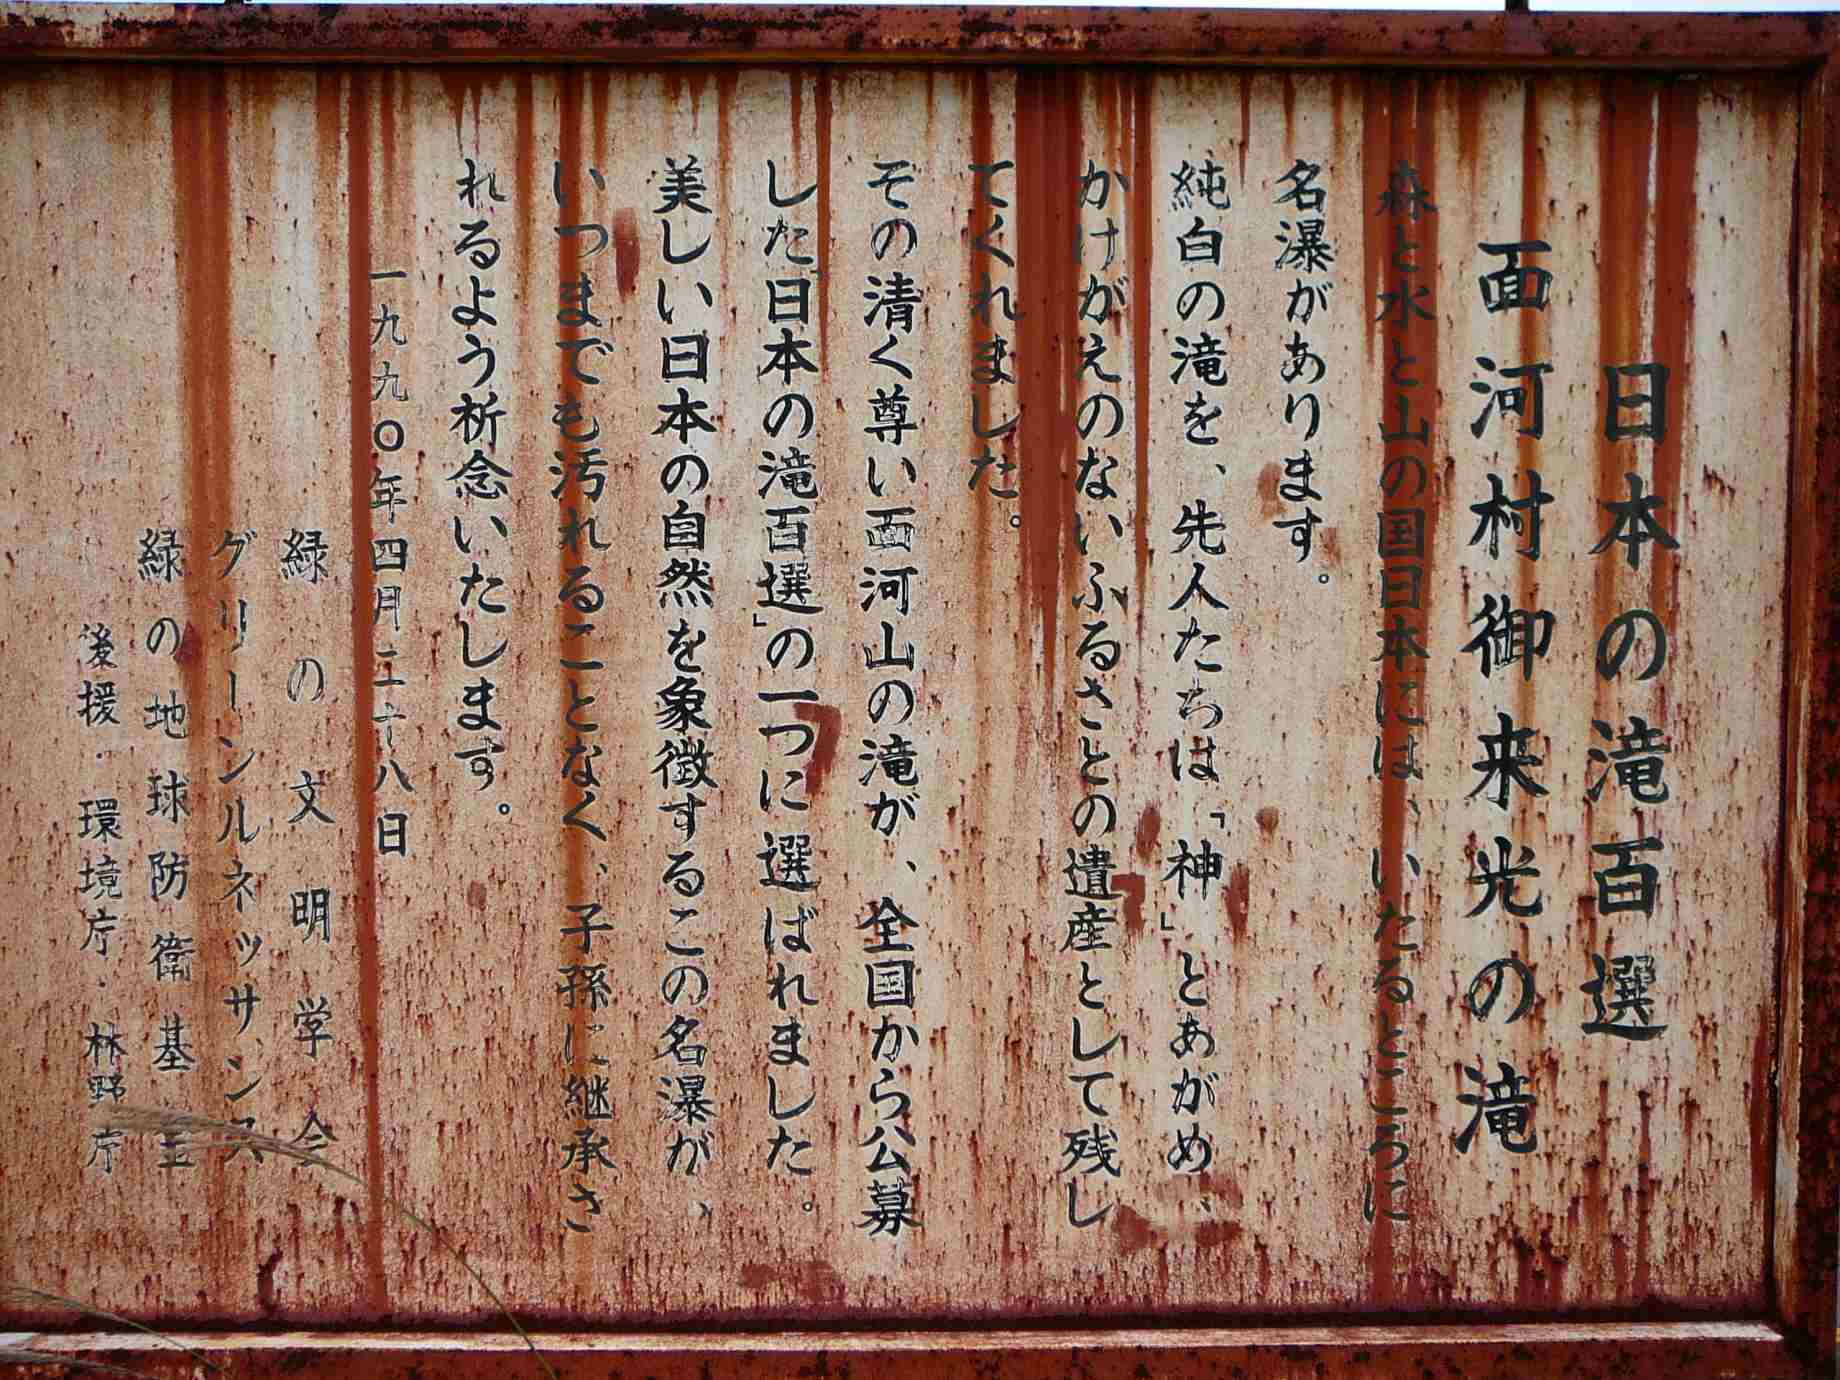 日本の滝百選
面河村御来光の滝
森と水と山の国日本には、いたるところに
名瀑があります。
純白の滝を、先人たちは「神」とあがめ、
かけがえのないふるさとの遺産として残し
てくれました。
その清く尊い面河山の滝が、全国から公募
した「日本の滝百選」の一つに選ばれました。
美しい日本の自然を象徴するこの名瀑が、
いつまでも汚れることなく、子孫に継承さ
れるよう祈念いたします。
一九九〇年四月二十八日
緑の文明学会
グリーンルネッサンス
緑の地球防衛基金
後援・環境庁・林野庁